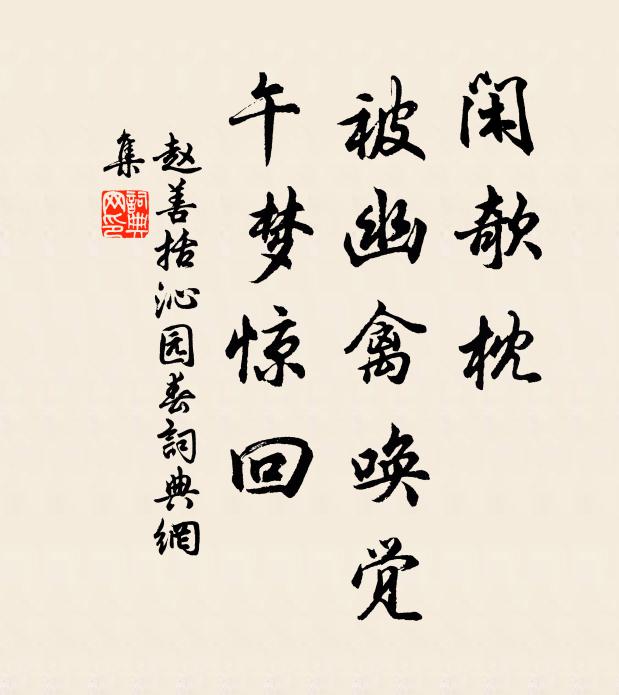 闲欹枕
被幽禽唤觉
午梦惊回
赵善括沁园春詞典網
集
詞典
网印